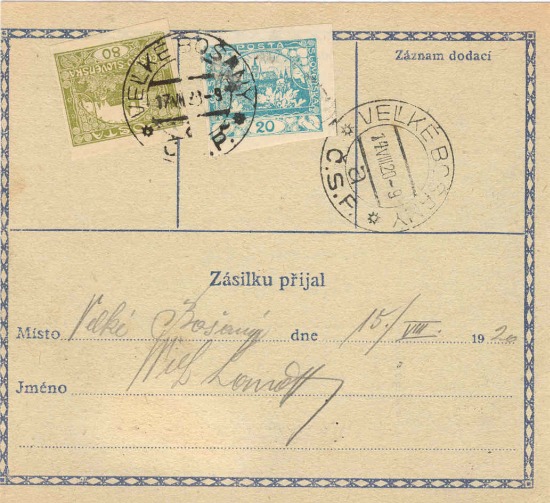 60
SLOVENSKÁ
POŠTA
20
SLOVENSKÁ
VEĽKÉ BOŠANY
17 VIII 20-9
Č.S.P.
Záznam dodací
VEĽKÉ BOŠANY
14 VIII 20-9
a
Č.S.P.
Zásilku přijal
Místo Velké Bošany dne 15./VIII. 1920
Jméno